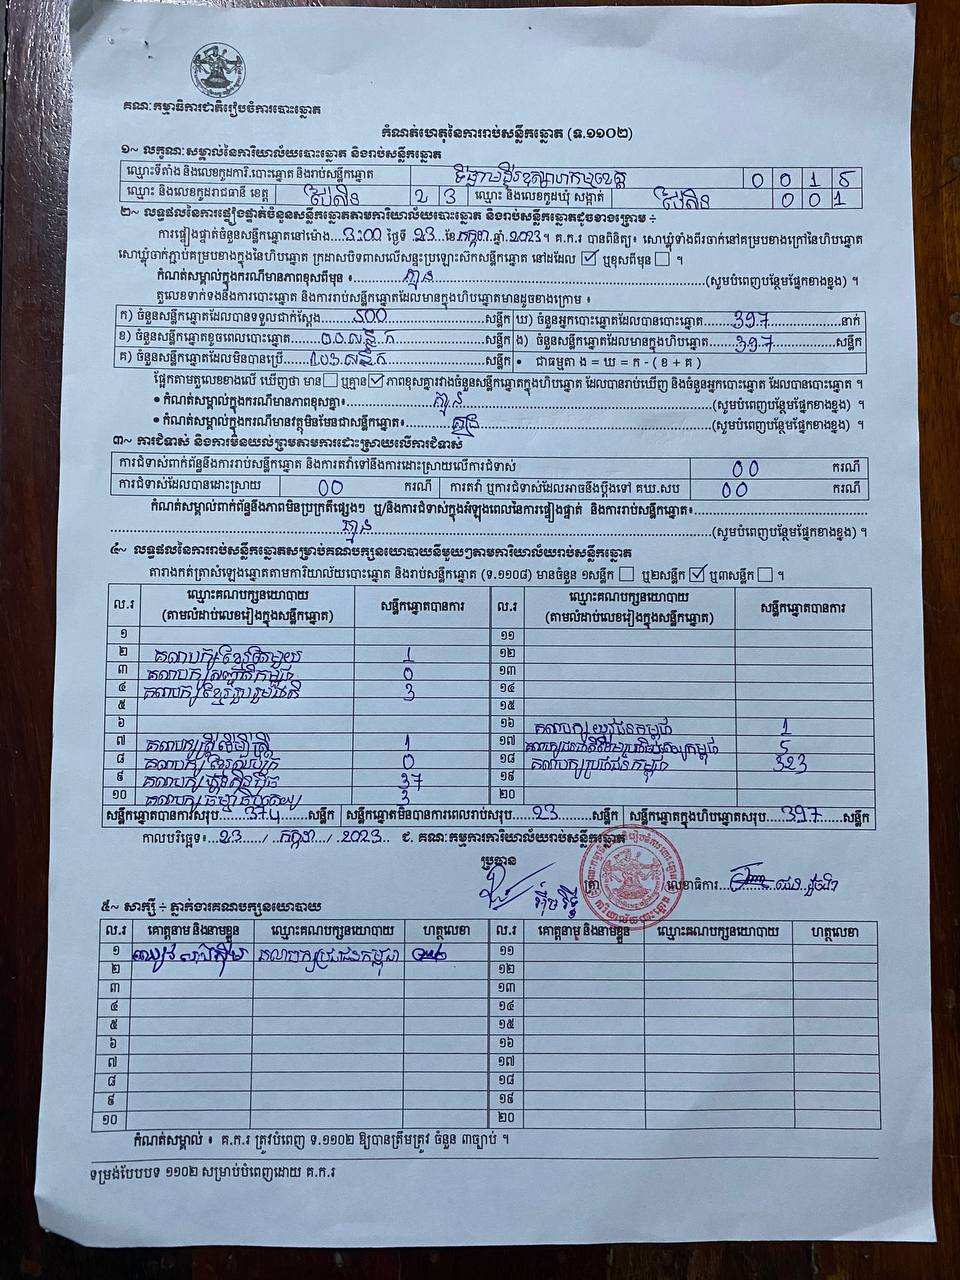 គណៈកម្មាធិការជាតិរៀបចំការបោះឆ្នោត
កំណត់ហេតុនៃការរាប់សន្លឹកឆ្នោត (ទ.១១០២)
១~ លក្ខណៈសម្គាល់នៃការិយាល័យបោះឆ្នោត និងរាប់សន្លឹកឆ្នោត
ឈ្មោះទីតាំង និងលេខកូដការិ.បោះឆ្នោត និងរាប់សន្លឹកឆ្នោត 0 0 1 5
ឈ្មោះ និងលេខកូដរាជធានី ខេត្ត ប៉ៃលិន 2 3 ឈ្មោះ និងលេខកូដឃុំ សង្កាត់ ប៉ៃលិន 0 0 1
២~ លទ្ធផលនៃការផ្ទៀងផ្ទាត់ចំនួនសន្លឹកឆ្នោតតាមការិយាល័យបោះឆ្នោត និងរាប់សន្លឹកឆ្នោតដូចខាងក្រោម ÷
ការផ្ទៀងផ្ទាត់ចំនួនសន្លឹកឆ្នោតនៅម៉ោង...3:00 ថ្ងៃទី 23 ខែកក្កដា ឆ្នាំ 2023។ គ.ក.រ បានពិនិត្យ៖ សោឃ្លុំទាំងពីរចាក់នៅគម្របខាងក្រៅនៃហិបឆ្នោត
សោឃ្លុំចាក់ភ្ជាប់គម្របខាងក្នុងនៃហិបឆ្នោត ក្រដាសបិទពាសលើសន្ទះប្រឡោះសៀតសន្លឹកឆ្នោត នៅដដែល ☑ ឬខុសពីមុន ☐ ។
កំណត់សម្គាល់ក្នុងករណីមានភាពខុសពីមុន ៖ គ្មាន (សូមបំពេញបន្ថែមផ្នែកខាងខ្នង) ។
តួលេខទាក់ទងនឹងការបោះឆ្នោត និងការរាប់សន្លឹកឆ្នោតដែលមានក្នុងហិបឆ្នោតមានដូចខាងក្រោម ៖
ក) ចំនួនសន្លឹកឆ្នោតដែលបានទទួលជាក់ស្តែង 500 សន្លឹក ឃ) ចំនួនអ្នកបោះឆ្នោតដែលបានបោះឆ្នោត 397 នាក់
ខ) ចំនួនសន្លឹកឆ្នោតខូចពេលបោះឆ្នោត 00 សន្លឹក ង) ចំនួនសន្លឹកឆ្នោតដែលមានក្នុងហិបឆ្នោត 397 សន្លឹក
គ) ចំនួនសន្លឹកឆ្នោតដែលមិនបានប្រើ 103 សន្លឹក • ជាធម្មតា ង = ឃ = ក - ( ខ + គ )
ផ្អែកតាមតួលេខខាងលើ ឃើញថា មាន☐ ឬគ្មាន☑ភាពខុសគ្នារវាងចំនួនសន្លឹកឆ្នោតក្នុងហិបឆ្នោត ដែលបានរាប់ឃើញ និងចំនួនអ្នកបោះឆ្នោត ដែលបានបោះឆ្នោត ។
• កំណត់សម្គាល់ក្នុងករណីមានភាពខុសគ្នា៖ គ្មាន (សូមបំពេញបន្ថែមផ្នែកខាងខ្នង) ។
• កំណត់សម្គាល់ក្នុងករណីមានវត្ថុមិនមែនជាសន្លឹកឆ្នោត៖ គ្មាន (សូមបំពេញបន្ថែមផ្នែកខាងខ្នង) ។
៣~ ការជំទាស់ និងការមិនយល់ព្រមតាមការដោះស្រាយលើការជំទាស់
ការជំទាស់ពាក់ព័ន្ធនឹងការរាប់សន្លឹកឆ្នោត និងការតវ៉ាទៅនឹងការដោះស្រាយលើការជំទាស់ 00 ករណី
ការជំទាស់ដែលបានដោះស្រាយ 00 ករណី ការតវ៉ា ឬការជំទាស់ដែលអាចនឹងប្តឹងទៅ គឃ.សប 00 ករណី
កំណត់សម្គាល់ពាក់ព័ន្ធនឹងភាពមិនប្រក្រតីផ្សេងៗ ឬ/និងការជំទាស់ក្នុងអំឡុងពេលនៃការផ្ទៀងផ្ទាត់ និងការរាប់សន្លឹកឆ្នោត៖
គ្មាន (សូមបំពេញបន្ថែមផ្នែកខាងខ្នង) ។
៤~ លទ្ធផលនៃការរាប់សន្លឹកឆ្នោតសម្រាប់គណបក្សនយោបាយនីមួយៗតាមការិយាល័យរាប់សន្លឹកឆ្នោត
តារាងកត់ត្រាសំឡេងឆ្នោតតាមការិយាល័យបោះឆ្នោត និងរាប់សន្លឹកឆ្នោត (ទ.១១០៨) មានចំនួន ១សន្លឹក ☐ ឬ២សន្លឹក ☑ ឬ៣សន្លឹក ☐ ។
ល.រ ឈ្មោះគណបក្សនយោបាយ (តាមលំដាប់លេខរៀងក្នុងសន្លឹកឆ្នោត) សន្លឹកឆ្នោតបានការ ល.រ ឈ្មោះគណបក្សនយោបាយ (តាមលំដាប់លេខរៀងក្នុងសន្លឹកឆ្នោត) សន្លឹកឆ្នោតបានការ
១ ១១
២ គណបក្សខ្មែរតែមួយ 1 ១២
៣ គណបក្សសញ្ជាតិកម្ពុជា 0 ១៣
៤ គណបក្សខ្មែររួបរួមជាតិ 3 ១៤
៥ ១៥
៦ ១៦ គណបក្សយុវជនកម្ពុជា 1
៧ គណបក្សស្ត្រីដើម្បីស្ត្រី 1 ១៧ 5
៨ 0 ១៨ គណបក្សប្រជាជនកម្ពុជា 323
៩ គណបក្សហ៊្វុនស៊ិនប៉ិច 37 ១៩
១០ គណបក្សធម្មាធិបតេយ្យ 3 ២០
សន្លឹកឆ្នោតបានការសរុប 374 សន្លឹក សន្លឹកឆ្នោតមិនបានការពេលរាប់សរុប 23 សន្លឹក សន្លឹកឆ្នោតក្នុងហិបឆ្នោតសរុប 397 សន្លឹក
កាលបរិច្ឆេទ៖ 23 / កក្កដា / 2023 ជ. គណៈកម្មការការិយាល័យរាប់សន្លឹកឆ្នោត
ប្រធាន
ត្រា លេខាធិការ
៥~ សាក្សី ÷ ភ្នាក់ងារគណបក្សនយោបាយ
ល.រ គោត្តនាម និងនាមខ្លួន ឈ្មោះគណបក្សនយោបាយ ហត្ថលេខា ល.រ គោត្តនាម និងនាមខ្លួន ឈ្មោះគណបក្សនយោបាយ ហត្ថលេខា
១ គណបក្សប្រជាជនកម្ពុជា ១១
២ ១២
៣ ១៣
៤ ១៤
៥ ១៥
៦ ១៦
៧ ១៧
៨ ១៨
៩ ១៩
១០ ២០
កំណត់សម្គាល់ ៖ គ.ក.រ ត្រូវបំពេញ ទ.១១០២ ឱ្យបានត្រឹមត្រូវ ចំនួន ៣ច្បាប់ ។
ទម្រង់បែបបទ ១១០២ សម្រាប់បំពេញដោយ គ.ក.រ